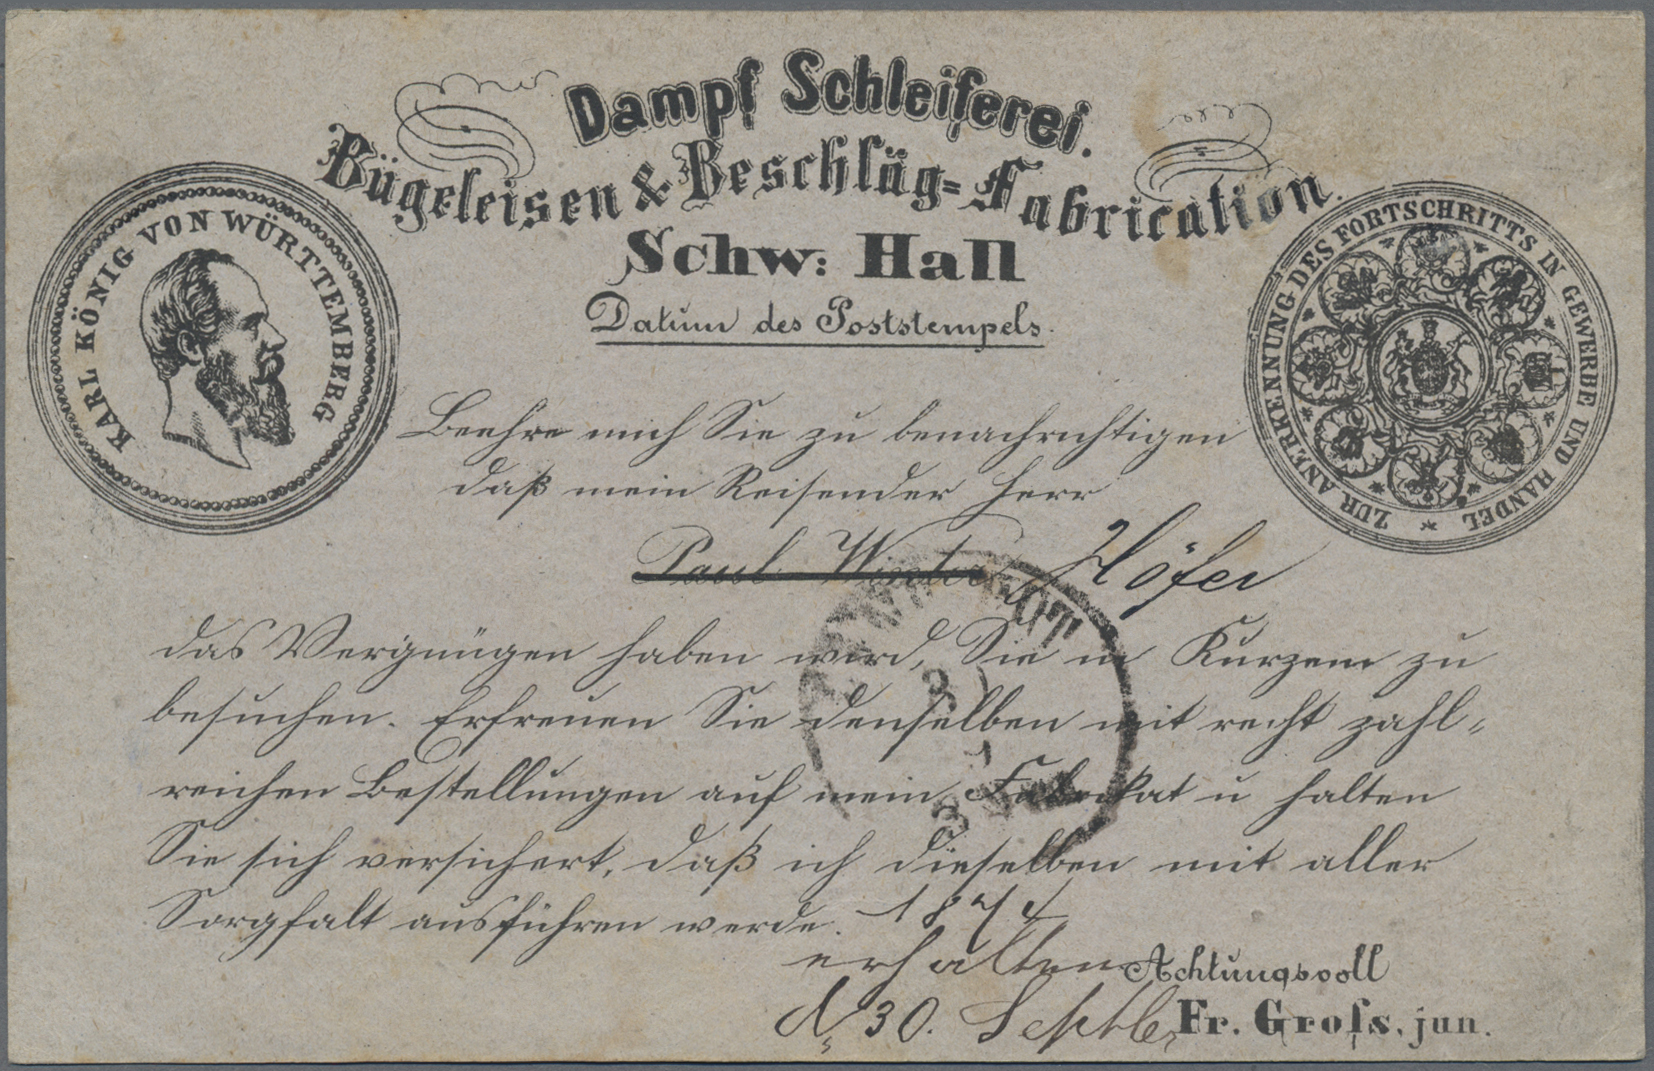 Dampf Schleiferei.
Bügeleisen & Beschläg=Fabrication.
Schw: Hall
Datum des Poststempels.
KARL KÖNIG VON WÜRTTEMBERG
ZUR ANERKENNUNG DES FORTSCHRITTS IN GEWERBE UND HANDEL
Beehre mich Sie zu benachrichtigen
daß mein Reisender Herr
Paul Winter Höfer
das Vergnügen haben wird, Sie in Kurzem zu
besuchen. Erfreuen Sie denselben mit recht zahl-
reichen Bestellungen auf mein Fabrikat u halten
Sie sich versichert, daß ich dieselben mit aller
Sorgfalt ausführen werde. 1874
erhalten Achtungsvoll
30. Septbr Fr. Groſs, jun.